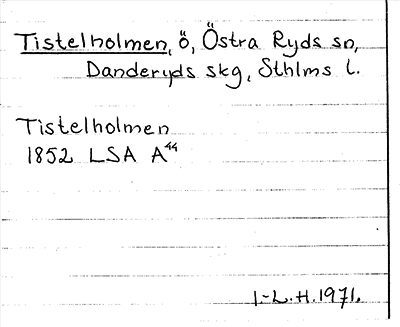 Tistelholmen, ö, Östra Ryds sn,
Danderyds skg, Sthlms l.
Tistelholmen
1852 LSA A⁴⁴
I-L.H.1971.